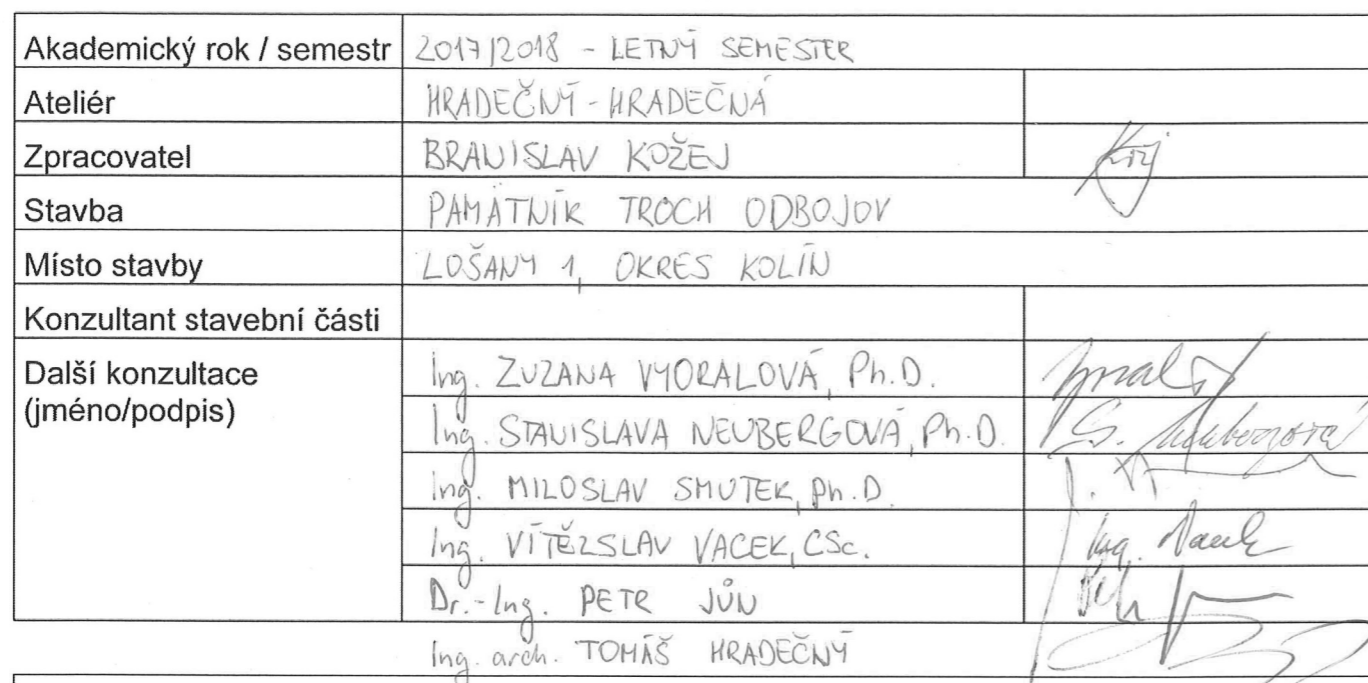 Akademický rok / semestr 2017/2018 - LETNÝ SEMESTER
Ateliér HRADEČNÝ - HRADEČNÁ
Zpracovatel BRANISLAV KOŽEJ
Stavba PAMÄTNÍK TROCH ODBOJOV
Místo stavby LOŠANY 1, OKRES KOLÍN
Konzultant stavební části
Další konzultace Ing. ZUZANA VYORALOVÁ, Ph.D.
(jméno/podpis) Ing. STANISLAVA NEUBERGOVÁ, Ph.D. S. Neubergová
Ing. MILOSLAV SMUTEK, Ph.D.
Ing. VÍTĚZSLAV VACEK, CSc. Ing. Vacek
Dr.-Ing. PETR JŮN
Ing. arch. TOMÁŠ HRADEČNÝ